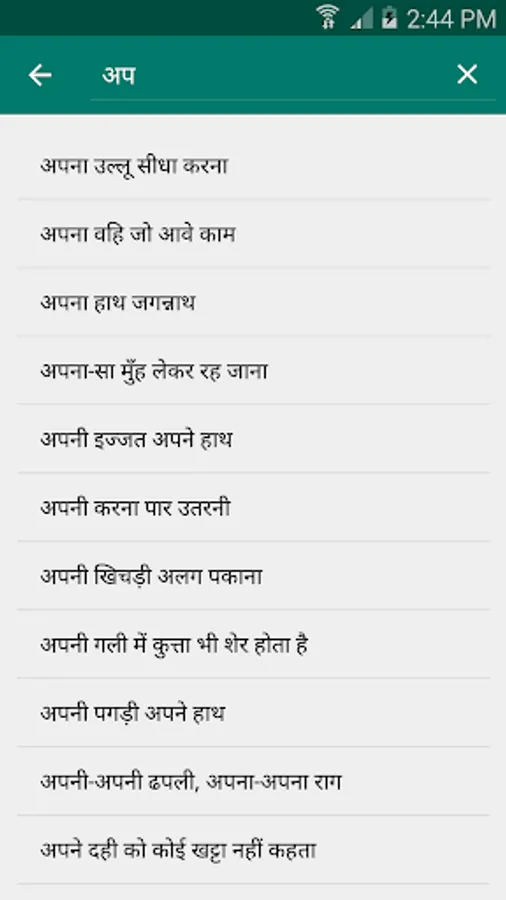 2:44 PM
अप
अपना उल्लू सीधा करना
अपना वहि जो आवे काम
अपना हाथ जगन्नाथ
अपना-सा मुँह लेकर रह जाना
अपनी इज्जत अपने हाथ
अपनी करना पार उतरनी
अपनी खिचड़ी अलग पकाना
अपनी गली में कुत्ता भी शेर होता है
अपनी पगड़ी अपने हाथ
अपनी-अपनी ढपली, अपना-अपना राग
अपने दही को कोई खट्टा नहीं कहता